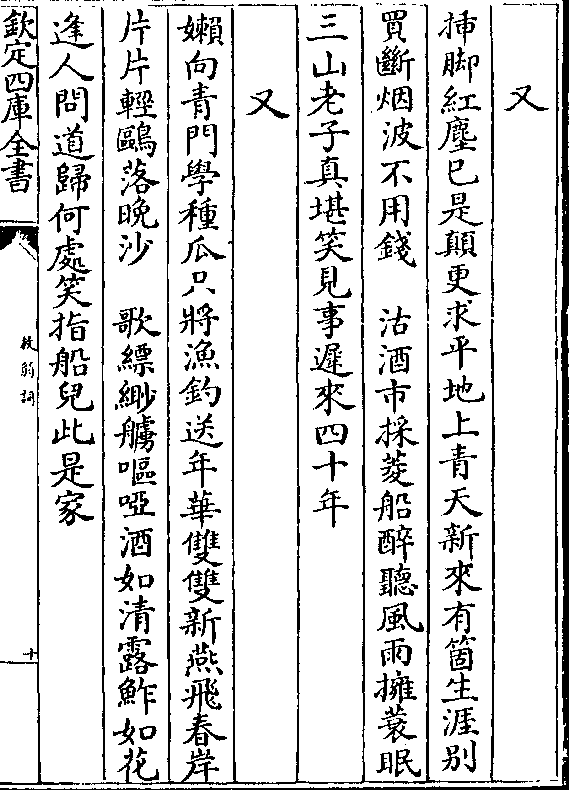 又
揷脚紅塵已是顛更求平地上青天新來有箇生涯别
買斷烟波不用錢　沽酒市採菱船醉聽風雨擁蓑眠
三山老子真堪笑見事遲來四十年
又
嬾向青門學種瓜只將漁釣送年華雙雙新燕飛春岸
片片輕鷗落晚沙　歌縹緲艣嘔啞酒如清露鮓如花
逢人問道歸何處笑指船兒此是家
欽定四庫全書
放翁詞
十